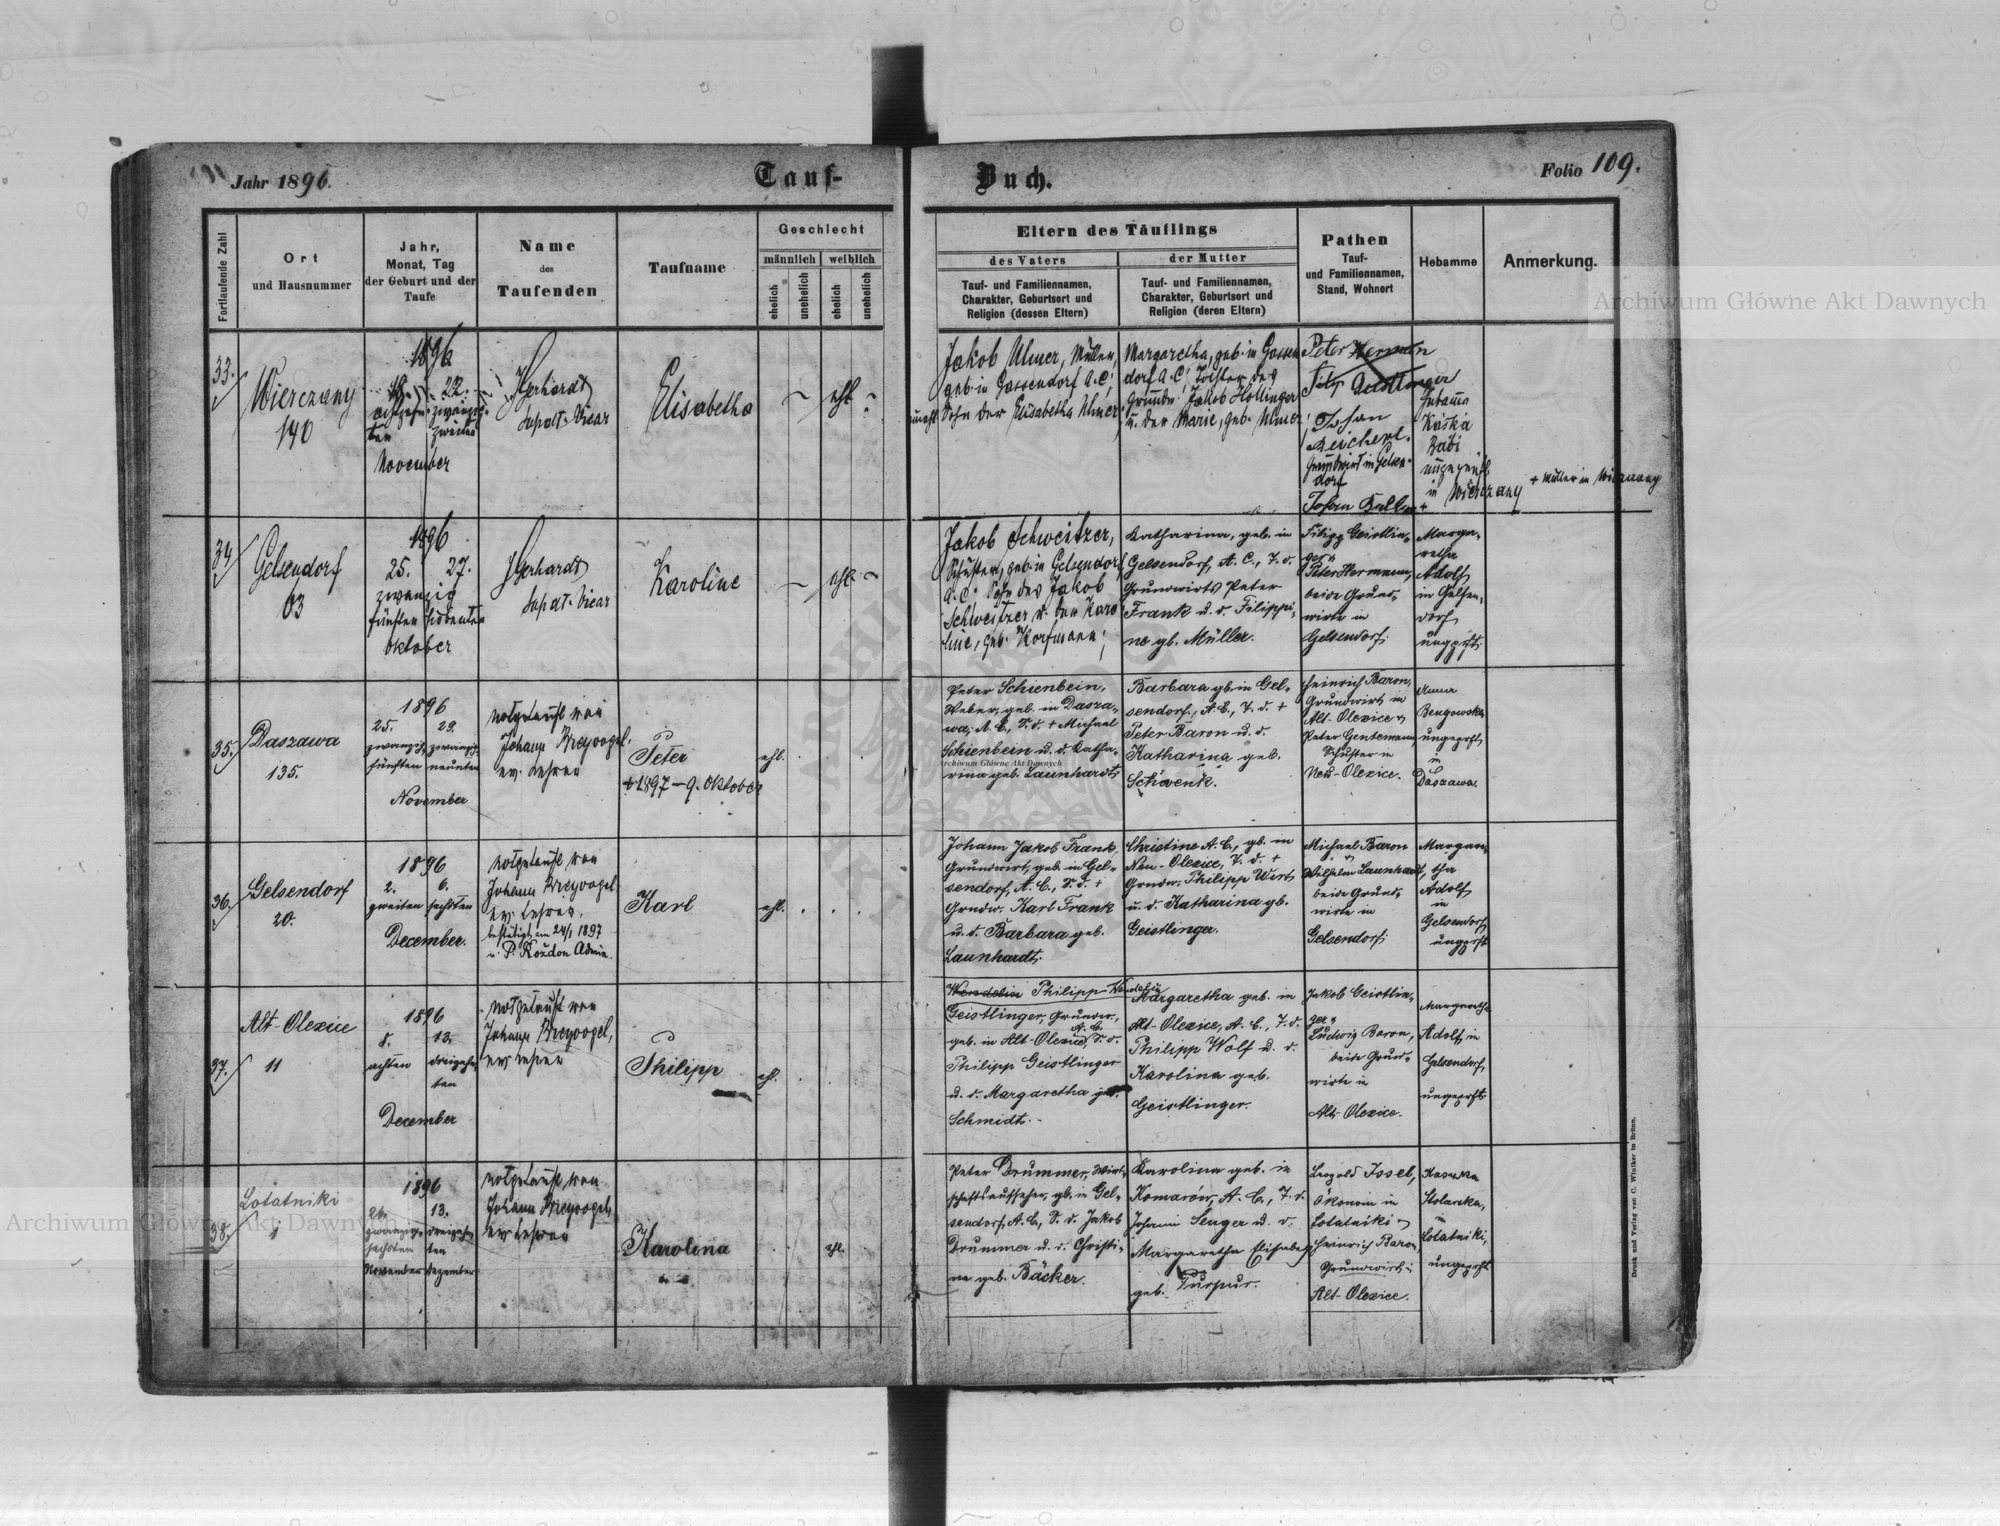 Jahr 1896.
Tauf-
Buch.
Folio 109.
Fortlaufende Zahl
Ort
und Hausnummer
Jahr,
Monat, Tag
der Geburt und der
Taufe
Name
des
Taufenden
Taufname
Geschlecht
männlich
weiblich
ehelich
unehelich
ehelich
unehelich
Eltern des Täuflings
des Vaters
der Mutter
Tauf- und Familiennamen,
Charakter, Geburtsort und
Religion (dessen Eltern)
Tauf- und Familiennamen,
Charakter, Geburtsort und
Religion (deren Eltern)
Pathen
Tauf-
und Familiennamen,
Stand, Wohnort
Hebamme
Anmerkung.
33.
Wierczany
140
1896
18. 22.
achtzehn- zwanzig-
ten zweiten
November
Gerhardt
Supdt. Vicar
Elisabetha
ehl
Jakob Ulmer, Müller,
geb. in Gassendorf A.C.,
unehl Sohn der Elisabetha Ulmer
Margaretha, geb. in Gassen
dorf A.C., Tochter des
Grundw. Jakob Hollinger
u. der Marie, geb. Ulmer
Peter Herman
Filip Geistlinger
Johan
Reichert.
Grundwirt in Gelsen-
dorf
Johan
Hebamme
Kaśka
Babi
ungeprüft
in Wierczany
+ Müller in Wierczany
34
Gelsendorf
63
1896
25. 27.
zwanzig
fünften siebenten
Oktober
Gerhardt
Supdt. Vicar
Karoline
ehl.
Jakob Schweitzer,
Schuster, geb. in Gelsendorf
A.C. Sohn des Jakob
Schweitzer u. der Karo
line, geb. Korfmann;
Katharina, geb. in
Gelsendorf, A. C., T. d.
Grundwirts Peter
Frank u. d. Filippi-
ne gb. Müller.
Filipp Geistlin-
ger u
Peter Hermann,
beide Grund-
wirte in
Gelsendorf.
Marga-
retha
Adolf
in Gelsen-
dorf
ungeprft.
35.
Daszawa
135.
1896
25. 29.
zwanzig zwanzig
fünften neunten
November
notgetauft von
Johann Breyvogel,
ev. Lehrer
Peter
+ 1897 - 9. Oktober
ehl.
Peter Schienbein,
Weber, geb. in Dasza-
wa, A. C., S. d. + Michael
Schienbein u. d. Katha-
rina geb. Launhardt.
Barbara gb. in Gel-
sendorf, A. C., T. d. +
Peter Baron u. d.
Katharina geb.
Schwenk.
Heinrich Baron,
Grundwirt in
Alt-Olexice u
Peter Gentemann,
Schuster in
Neu-Olexice.
Anna
Bengowska
ungeprft
in
Daszawa.
36.
Gelsendorf
20.
1896
2. 6.
zweiten sechsten
December.
notgetauft von
Johann Breyvogel
ev. Lehrer,
bestätigt am 24/1 1897
v. P. Kozdon Admin.
Karl
ehl.
Johann Jakob Frank,
Grundwirt, geb. in Gel-
sendorf, A. C., S. d. +
Grndw. Karl Frank
u. d. Barbara geb.
Launhardt.
Christine A. C., gb. in
Neu-Olexice, T. d. +
Grndw. Philipp Wirt
u. d. Katharina gb.
Geistlinger.
Michael Baron
u
Wilhelm Launhardt,
beide Grund-
wirte in
Gelsendorf.
Margare-
tha
Adolf
in
Gelsendorf
ungeprft
37.
Alt-Olexice
11
1896
8. 13.
achten dreizehn
ten
December
notgetauft von
Johann Breyvogel,
ev. Lehrer
Philipp
ehl.
Wendelin Philipp Wendelin
Geistlinger, Grundw.,
A. C.
geb. in Alt-Olexice, S. d.
Philipp Geistlinger
u. d. Margaretha geb.
Schmidt.
Margaretha geb. in
Alt-Olexice, A. C., T. d.
Philipp Wolf u. d.
Karolina geb.
Geistlinger.
Jakob Geistlin-
ger u
Ludwig Baron,
beide Grund-
wirte in
Alt-Olexice.
Margaretha
Adolf in
Gelsendorf
ungeprft
38.
Lotatniki
1
1896
26. 13.
zwanzig- dreizehn-
sechsten ten
November Dezember
notgetauft von
Johann Breyvogel,
ev. Lehrer
Karolina
ehl.
Peter Drummer, Wirt-
schaftsaufseher, gb. in Gel-
sendorf, A. C., S. d. Jakob
Drummer u. d. Christi-
ne geb. Bäcker.
Karolina geb. in
Komarów, A. C., T. d.
Johann Senger u. d.
Margaretha Elisabeth
geb. Purpur.
Leopold Issel,
Ökonom in
Lotatniki u
Heinrich Baron,
Grundwirt in
Alt-Olexice.
Stolarska,
in
Lotatniki,
ungeprft
Druck und Verlag von C. Winiker in Brünn.
Archiwum Główne Akt Dawnych
Archiwum Główne Akt Dawnych
Archiwum Główne Akt Dawnych